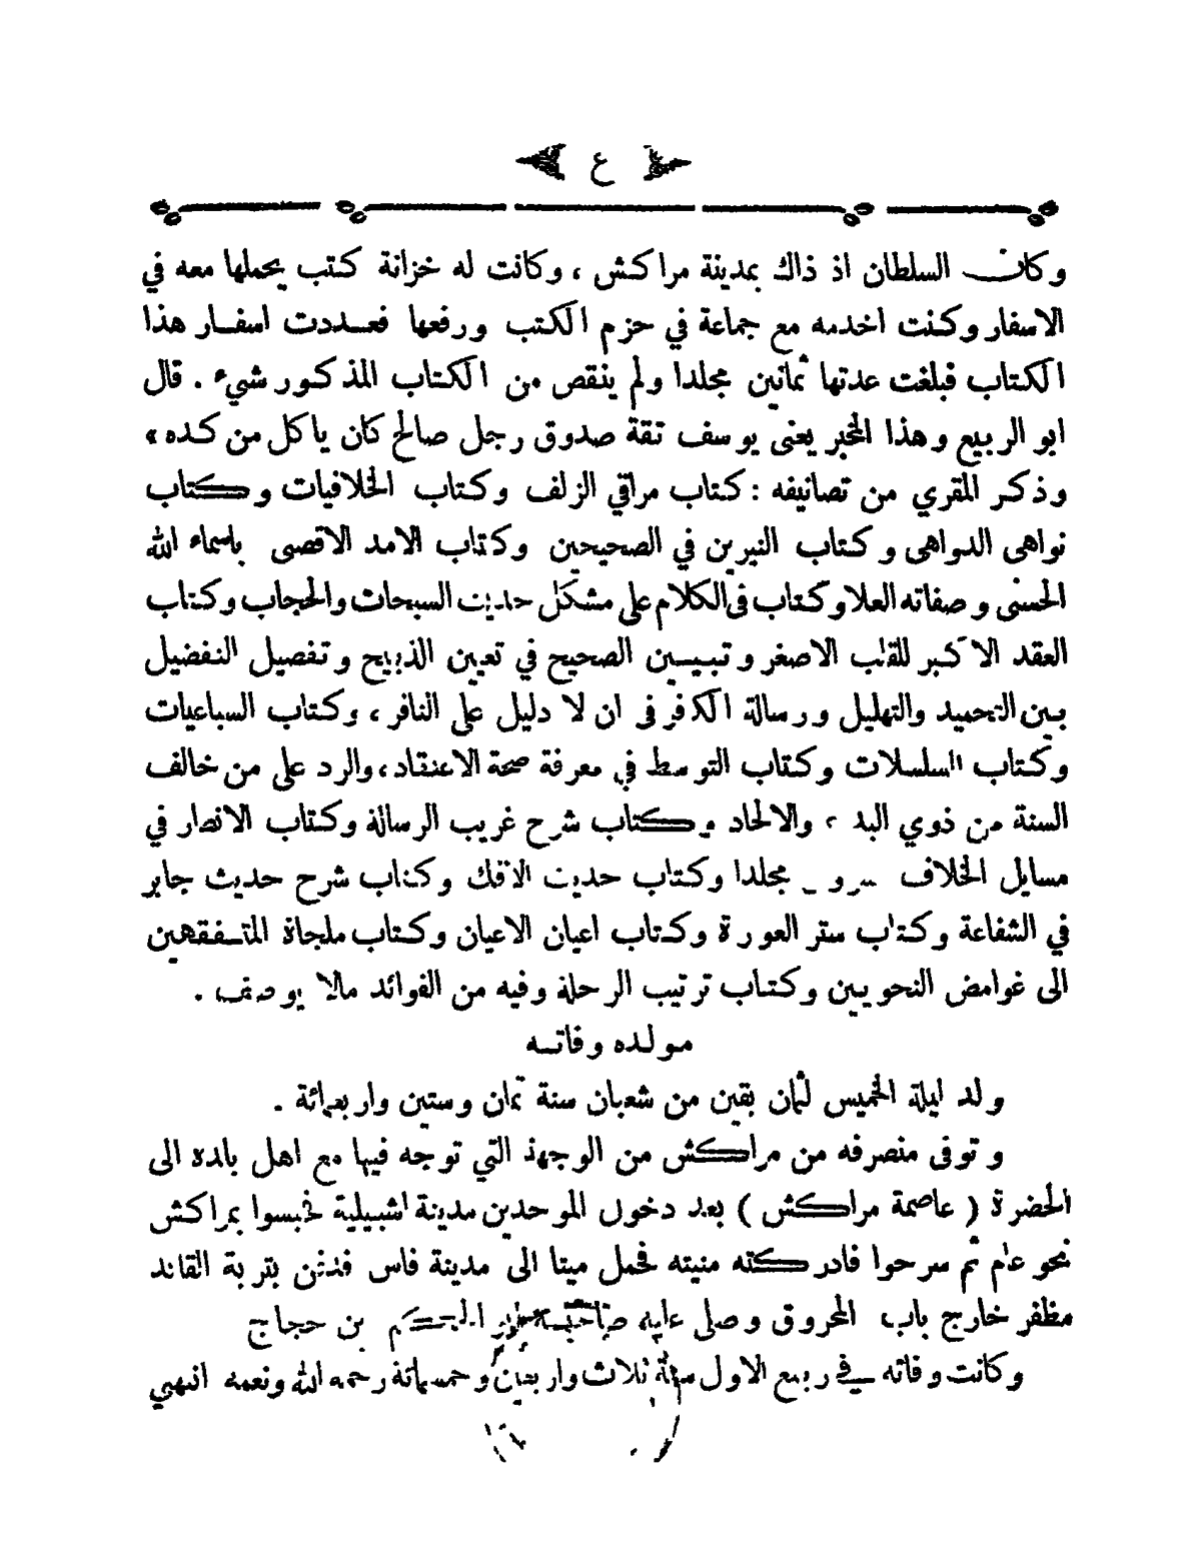 ع
وكان السلطان اذ ذاك بمدينة مراكش ، وكانت له خزانة كتب يحملها معه في
الاسفار وكنت اخدمه مع جماعة في حزم الكتب ورفعها فعددت اسفار هذا
الكتاب فبلغت عدتها ثمانين مجلدا ولم ينقص من الكتاب المذكور شيء . قال
ابو الربيع وهذا المخبر يعنى يوسف تقة صدوق رجل صالح كان ياكل من كده »
وذكر المقري من تصانيفه : كتاب مراقي الزلف وكتاب الخلافيات وكتاب
نواهى الدواهى وكتاب النيرين في الصحيحين وكتاب الامد الاقصى باسماء الله
الحسنى وصفاته العلا وكتاب فى الكلام على مشكل حديث السبحات والحجاب وكتاب
العقد الاكبر للقلب الاصغر وتبيين الصحيح في تعيين الذبيح وتفصيل التفضيل
بين التحميد والتهليل ورسالة الكافي فى ان لا دليل على النافر ، وكتاب السباعيات
وكتاب المسلسلات وكتاب التوسط في معرفة صحة الاعتقاد ، والرد على من خالف
السنة من ذوي البدع والالحاد وكتاب شرح غريب الرسالة وكتاب الانصار في
مسايل الخلاف مجلدا وكتاب حديث الافك وكتاب شرح حديث جابر
في الشفاعة وكتاب ستر العورة وكتاب اعيان الاعيان وكتاب ملجاة المتفقهين
الى غوامض النحويين وكتاب ترتيب الرحلة وفيه من الفوائد مالا يوصف .
مولده وفاته
ولد ليلة الخميس لثمان بقين من شعبان سنة ثمان وستين واربعمائة .
وتوفى منصرفه من مراكش من الوجهة التي توجه فيها مع اهل بلده الى
الحضرة ( عاصمة مراكش ) بعد دخول الموحدين مدينة اشبيلية فحبسوا بمراكش
نحو عام ثم سرحوا فادركته منيته فحمل ميتا الى مدينة فاس فدفن بتربة القائد
مظفر خارج باب المحروق وصلى عليه صاحبه الحكم بن حجاج
وكانت وفاته في ربيع الاول سنة ثلاث واربعين وخمسمائة رحمه الله ونعمه انتهى